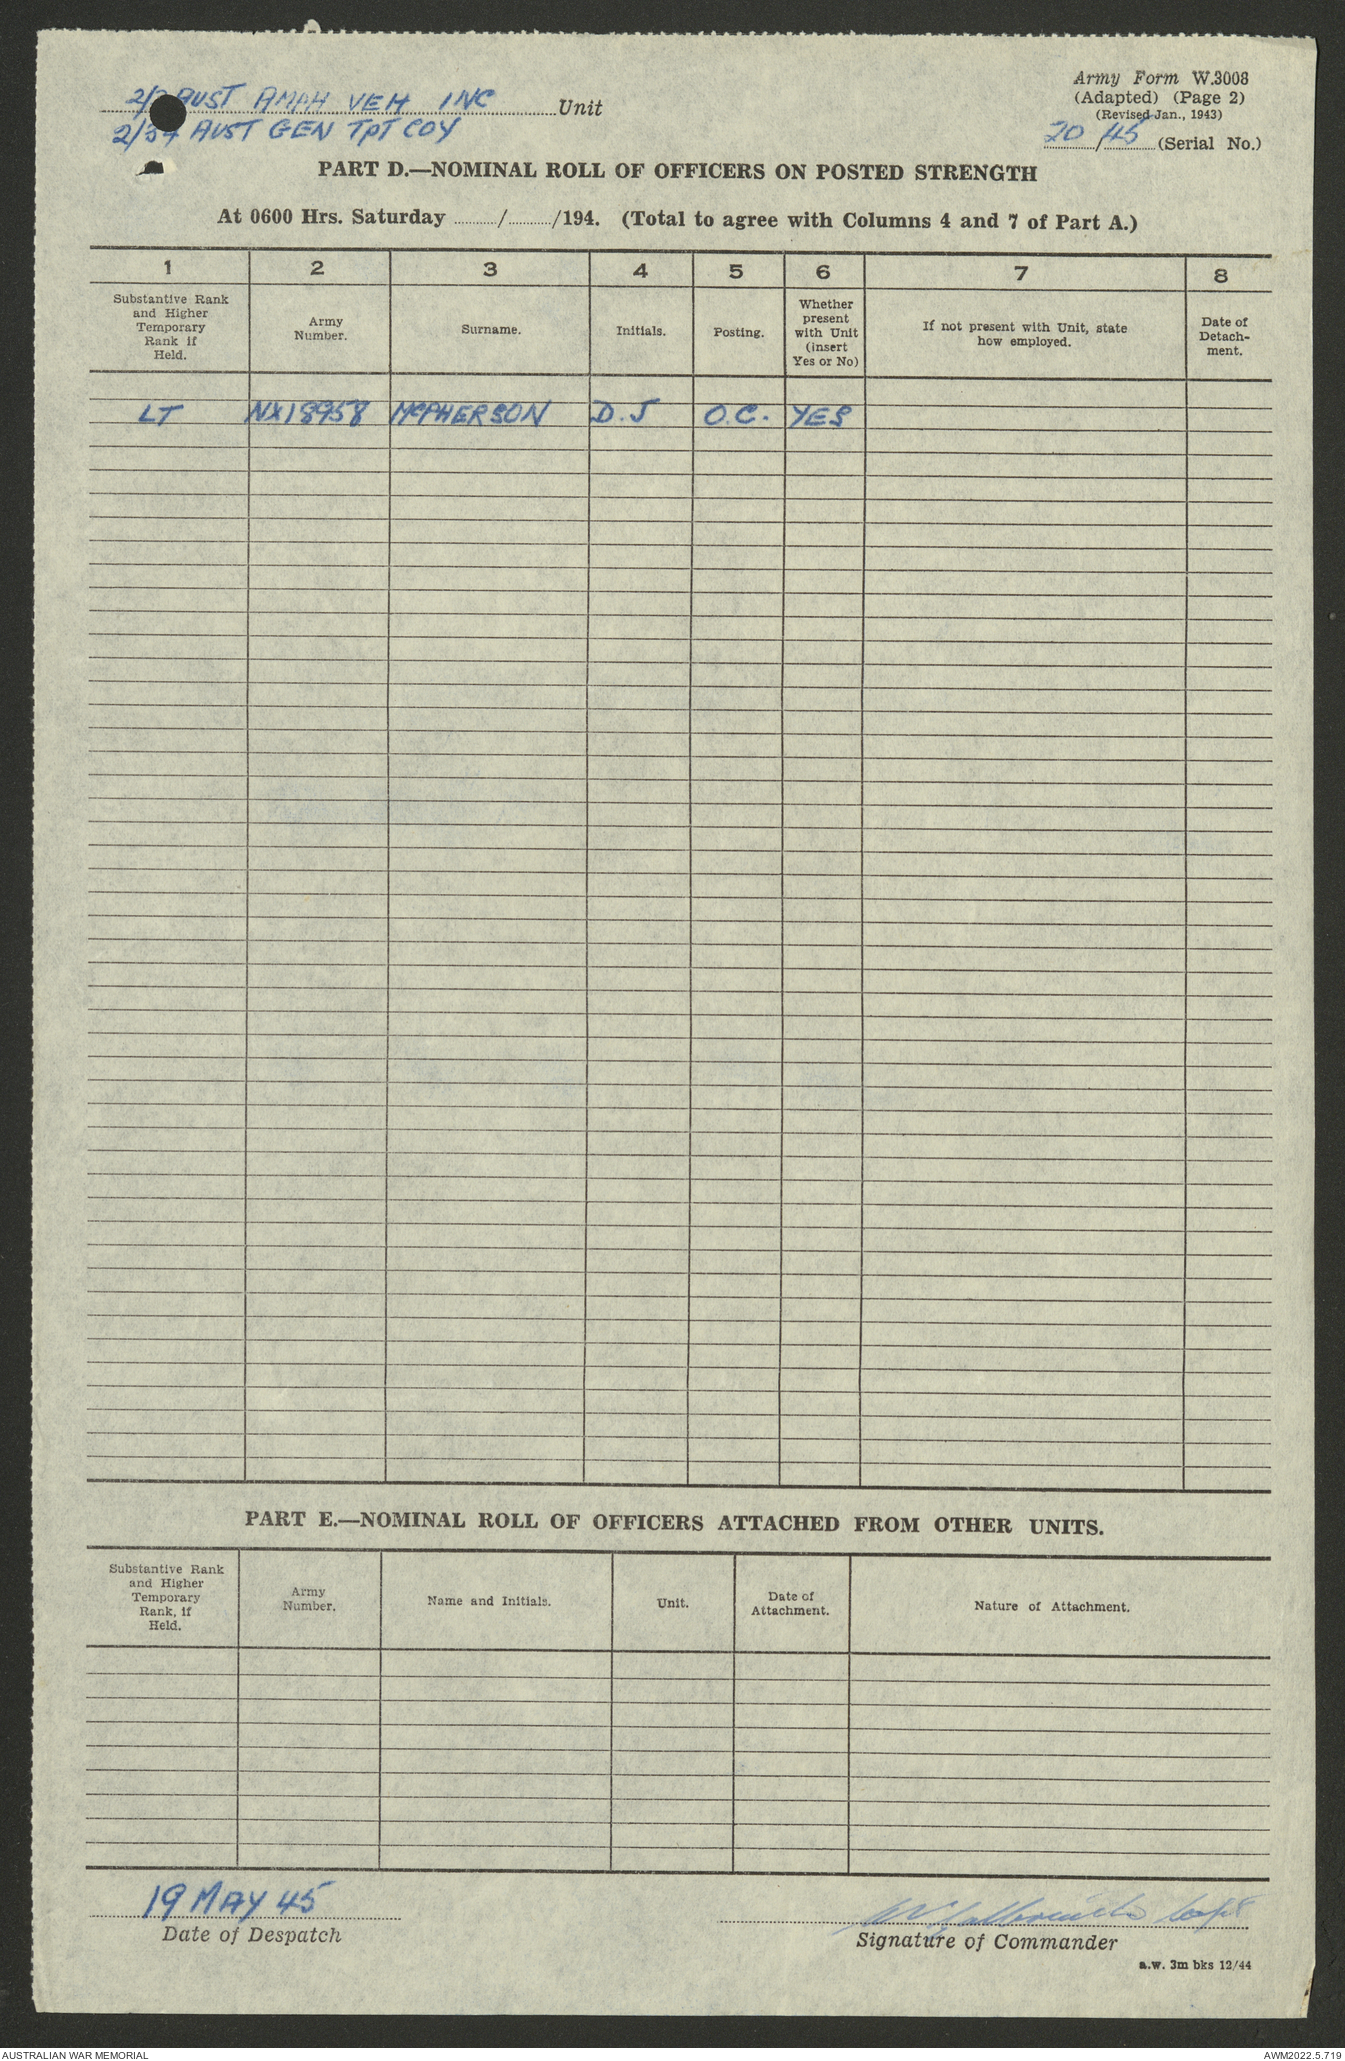 Army Form W.3008
(Adapted) (Page 2)
(Revised Jan., 1943)
20/45 (Serial No.)
AUST AMPH VEH INC Unit
AUST GEN TPT COY
PART D.—NOMINAL ROLL OF OFFICERS ON POSTED STRENGTH
At 0600 Hrs. Saturday ........../........../194. (Total to agree with Columns 4 and 7 of Part A.)
1 2 3 4 5 6 7 8
Substantive Rank and Higher Temporary Rank if Held.
Army Number.
Surname.
Initials.
Posting.
Whether present with Unit (insert Yes or No)
If not present with Unit, state how employed.
Date of Detach-ment.
LT NX18958 McPHERSON D.J O.C. YES
PART E.—NOMINAL ROLL OF OFFICERS ATTACHED FROM OTHER UNITS.
Substantive Rank and Higher Temporary Rank, if Held.
Army Number.
Name and Initials.
Unit.
Date of Attachment.
Nature of Attachment.
19 MAY 45
Date of Despatch
Capt
Signature of Commander
a.w. 3m bks 12/44
AUSTRALIAN WAR MEMORIAL
AWM2022.5.719